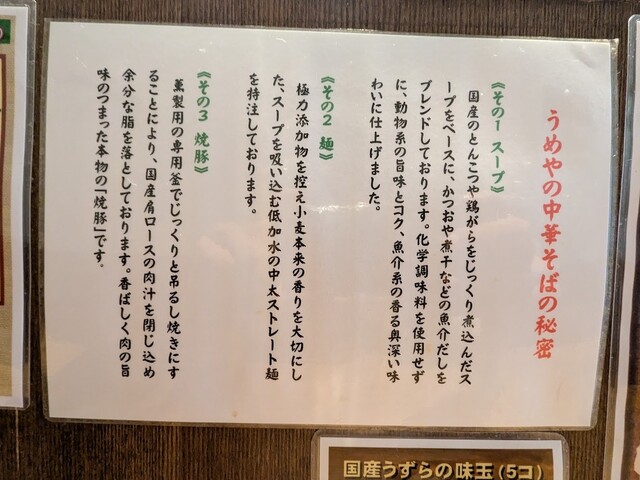 うめやの中華そばの秘密
《その1 スープ》
国産のとんこつや鶏がらをじっくり煮込んだス
ープをベースに、かつおや煮干などの魚介だしを
ブレンドしております。化学調味料を使用せず
に、動物系の旨味とコク、魚介系の香る奥深い味
わいに仕上げました。
《その2 麺》
極力添加物を控え小麦本来の香りを大切にし
た、スープを吸い込む低加水の中太ストレート麺
を特注しております。
《その3 焼豚》
薫製用の専用釜でじっくりと吊るし焼きにす
ることにより、国産肩ロースの肉汁を閉じ込め
余分な脂を落としております。香ばしく肉の旨
味のつまった本物の「焼豚」です。
国産うずらの味玉(5コ)